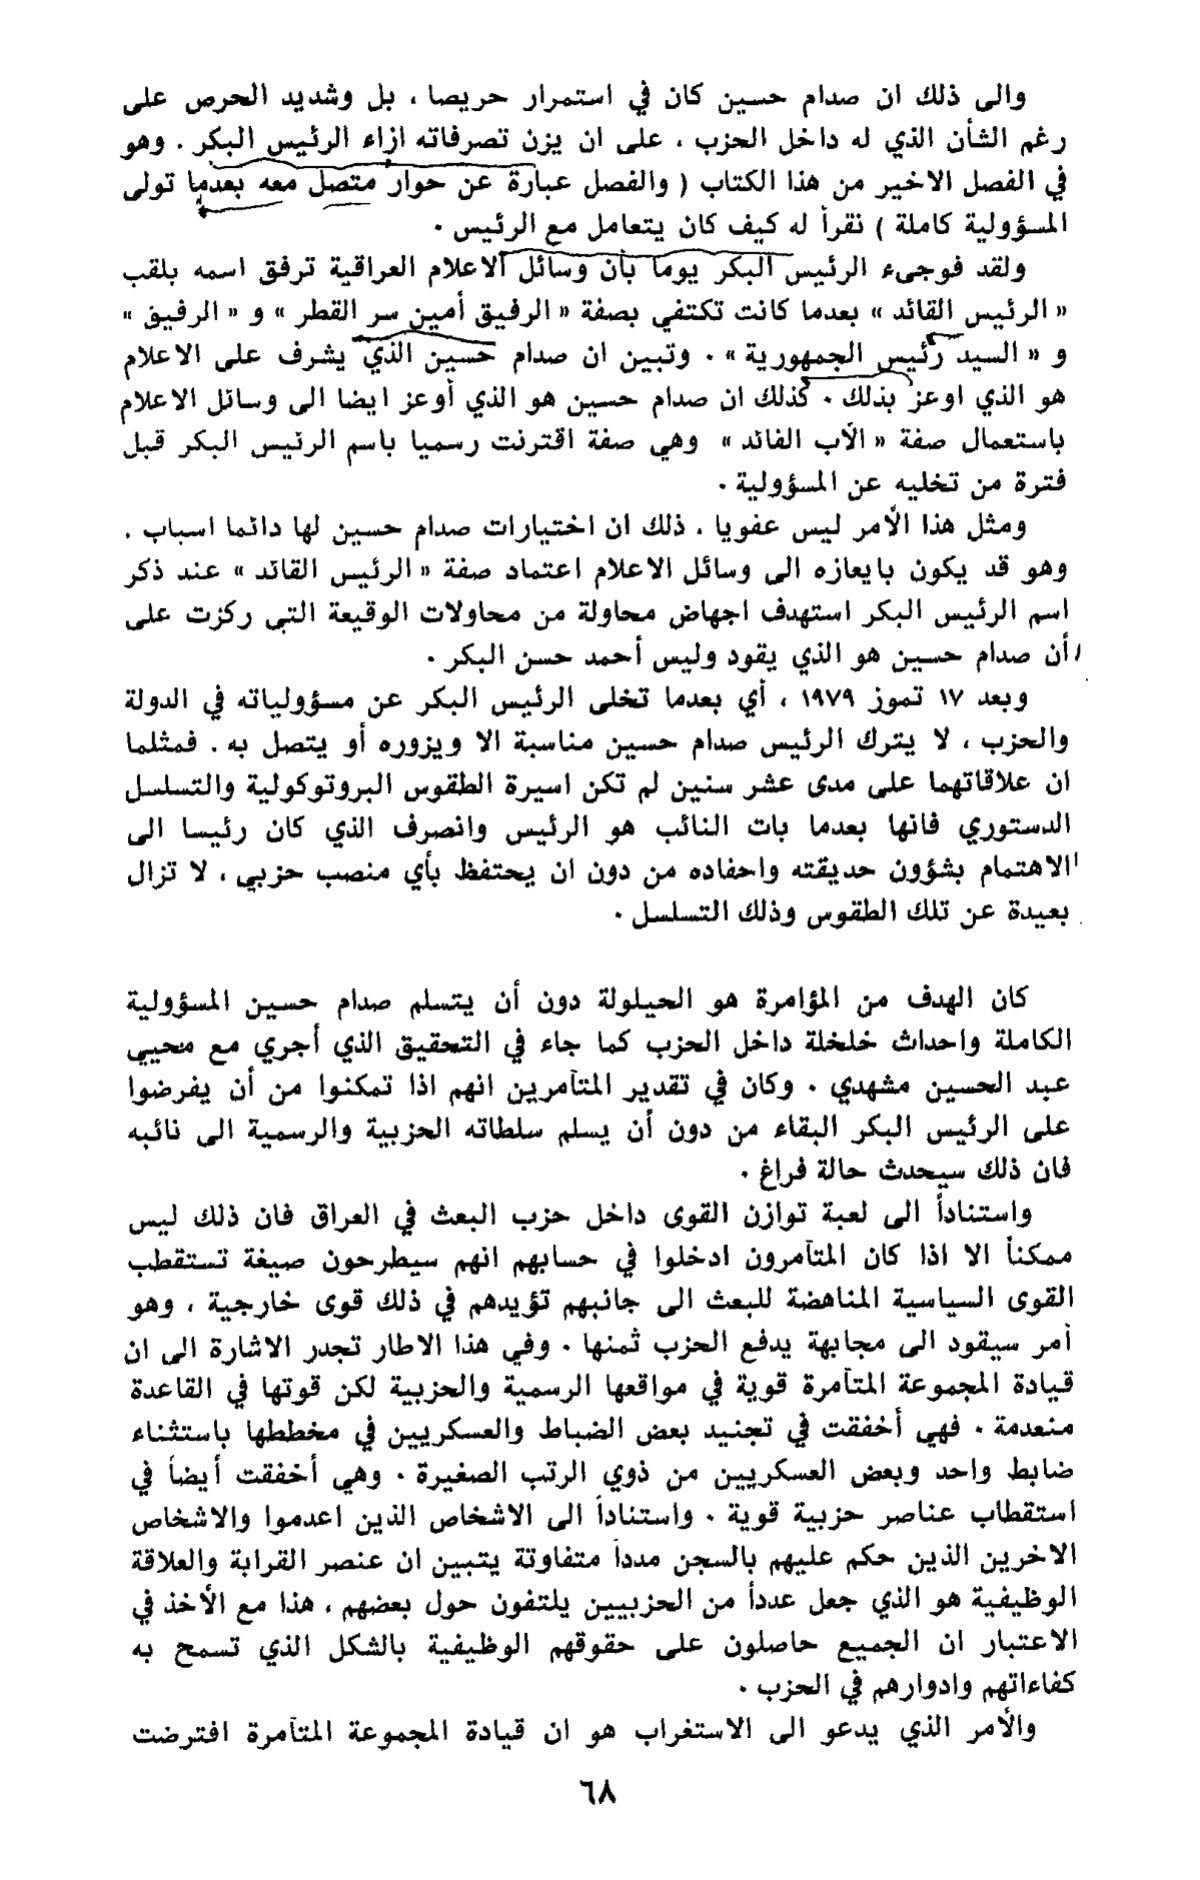 والى ذلك ان صدام حسين كان في استمرار حريصا ، بل وشديد الحرص على
رغم الشأن الذي له داخل الحزب ، على ان يزن تصرفاته ازاء الرئيس البكر . وهو
في الفصل الاخير من هذا الكتاب ( والفصل عبارة عن حوار متصل معه بعدما تولى
المسؤولية كاملة ) نقرأ له كيف كان يتعامل مع الرئيس .
ولقد فوجىء الرئيس البكر يوما بأن وسائل الاعلام العراقية ترفق اسمه بلقب
« الرئيس القائد » بعدما كانت تكتفي بصفة « الرفيق أمين سر القطر » و « الرفيق »
و « السيد رئيس الجمهورية » . وتبين ان صدام حسين الذي يشرف على الاعلام
هو الذي اوعز بذلك . كذلك ان صدام حسين هو الذي أوعز ايضا الى وسائل الاعلام
باستعمال صفة « الأب القائد » وهي صفة اقترنت رسميا باسم الرئيس البكر قبل
فترة من تخليه عن المسؤولية .
ومثل هذا الأمر ليس عفويا ، ذلك ان اختيارات صدام حسين لها دائما اسباب .
وهو قد يكون بايعازه الى وسائل الاعلام اعتماد صفة « الرئيس القائد » عند ذكر
اسم الرئيس البكر استهدف اجهاض محاولة من محاولات الوقيعة التي ركزت على
أن صدام حسين هو الذي يقود وليس أحمد حسن البكر .
وبعد ١٧ تموز ١٩٧٩ ، أي بعدما تخلى الرئيس البكر عن مسؤولياته في الدولة
والحزب ، لا يترك الرئيس صدام حسين مناسبة الا ويزوره أو يتصل به . فمثلما
ان علاقاتهما على مدى عشر سنين لم تكن اسيرة الطقوس البروتوكولية والتسلسل
الدستوري فانها بعدما بات النائب هو الرئيس وانصرف الذي كان رئيسا الى
الاهتمام بشؤون حديقته واحفاده من دون ان يحتفظ بأي منصب حزبي ، لا تزال
بعيدة عن تلك الطقوس وذلك التسلسل .
كان الهدف من المؤامرة هو الحيلولة دون أن يتسلم صدام حسين المسؤولية
الكاملة واحداث خلخلة داخل الحزب كما جاء في التحقيق الذي أجري مع محيي
عبد الحسين مشهدي . وكان في تقدير المتآمرين انهم اذا تمكنوا من أن يفرضوا
على الرئيس البكر البقاء من دون أن يسلم سلطاته الحزبية والرسمية الى نائبه
فان ذلك سيحدث حالة فراغ .
واستناداً الى لعبة توازن القوى داخل حزب البعث في العراق فان ذلك ليس
ممكناً الا اذا كان المتآمرون ادخلوا في حسابهم انهم سيطرحون صيغة تستقطب
القوى السياسية المناهضة للبعث الى جانبهم تؤيدهم في ذلك قوى خارجية ، وهو
أمر سيقود الى مجابهة يدفع الحزب ثمنها . وفي هذا الاطار تجدر الاشارة الى ان
قيادة المجموعة المتآمرة قوية في مواقعها الرسمية والحزبية لكن قوتها في القاعدة
منعدمة . فهي أخفقت في تجنيد بعض الضباط والعسكريين في مخططها باستثناء
ضابط واحد وبعض العسكريين من ذوي الرتب الصغيرة . وهي أخفقت أيضاً في
استقطاب عناصر حزبية قوية . واستناداً الى الاشخاص الذين اعدموا والاشخاص
الاخرين الذين حكم عليهم بالسجن مدداً متفاوتة يتبين ان عنصر القرابة والعلاقة
الوظيفية هو الذي جعل عدداً من الحزبيين يلتفون حول بعضهم ، هذا مع الأخذ في
الاعتبار ان الجميع حاصلون على حقوقهم الوظيفية بالشكل الذي تسمح به
كفاءاتهم وادوارهم في الحزب .
والأمر الذي يدعو الى الاستغراب هو ان قيادة المجموعة المتآمرة افترضت
٦٨